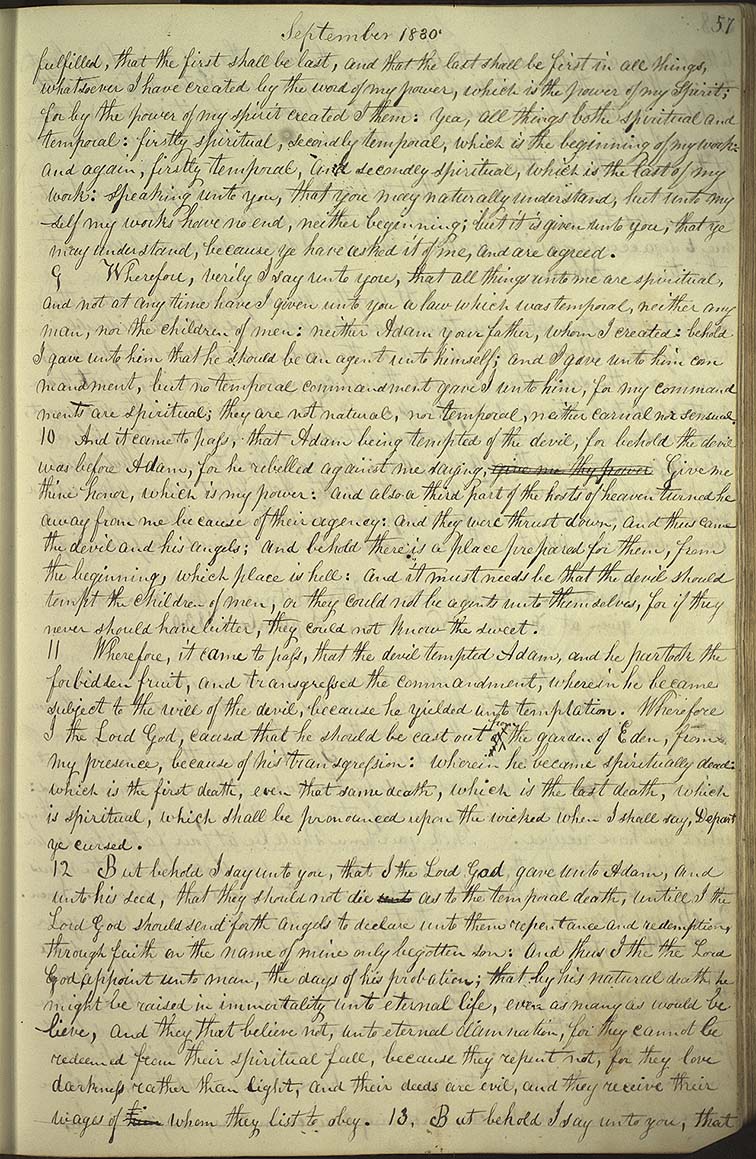 September 1830
57
fulfilled, that the first shall be last, and that the last shall be first in all things,
whatsoever I have created by the word of my power, which is the power of my Spirit;
for by the power of my spirit created I them: yea, all things bothe spiritual and
temporal: firstly spiritual, secondly temporal, which is the beginning of my work:
and again, firstly temporal, and secondly spiritual, which is the last of my
work: speaking unto you, that you may naturally understand, but unto my
-self my works have no end, neither beginning; but it is given unto you, that ye
may understand, because ye have asked it of me, and are agreed.
9 Wherefore, verily I say unto you, that all things unto me are spiritual,
and not at any time have I given unto you a law which was temporal, neither any
man, nor the children of men: neither Adam your father, whom I created: behold
I gave unto him that he should be an agent unto himself; and I gave unto him com
mandment, but no temporal commandment gave I unto him, for my command
ments are spiritual; they are not natural, nor temporal, neither carnal nor sensual.
10 And it came to pass, that Adam being tempted of the devil, for behold the devil
was before Adam, for he rebelled against me saying, give me thy power Give me
thine honor, which is my power: and also a third part of the hosts of heaven turned he
away from me because of their agency: and they were thrust down, and thus came
the devil and his angels; and behold there is a place prepared for them, from
the beginning, which place is hell: and it must needs be that the devil should
tempt the children of men, or they could not be agents unto themselves, for if they
never should have bitter, they could not know the sweet.
11 Wherefore, it came to pass, that the devil tempted Adam, and he partook the
forbidden fruit, and transgressed the commandment, wherein he became
subject to the will of the devil, because he yielded unto temptation. Wherefore
I the Lord God, caused that he should be cast out from the garden of Eden, from
my presence, because of his transgression: wherein he became spiritually dead:
which is the first death, even that same death, which is the last death, which
is spiritual, which shall be pronounced upon the wicked when I shall say, Depart
ye cursed.
12 But behold I say unto you, that I the Lord God, gave unto Adam, and
unto his seed, that they should not die unto as to the temporal death, untill I the
Lord God should send forth angels to declare unto them repentance and redemption,
through faith on the name of mine only begotten son: and thus I the the Lord
God appoint unto man, the days of his probation; that by his natural death, he
might be raised in immortality unto eternal life, even as many as would be
lieve, and they that believe not, unto eternal damnation, for they cannot be
redeemed from their spiritual fall, because they repent not, for they love
darkness rather than light, and their deeds are evil, and they receive their
wages of him whom they list to obey. 13. But behold I say unto you, that